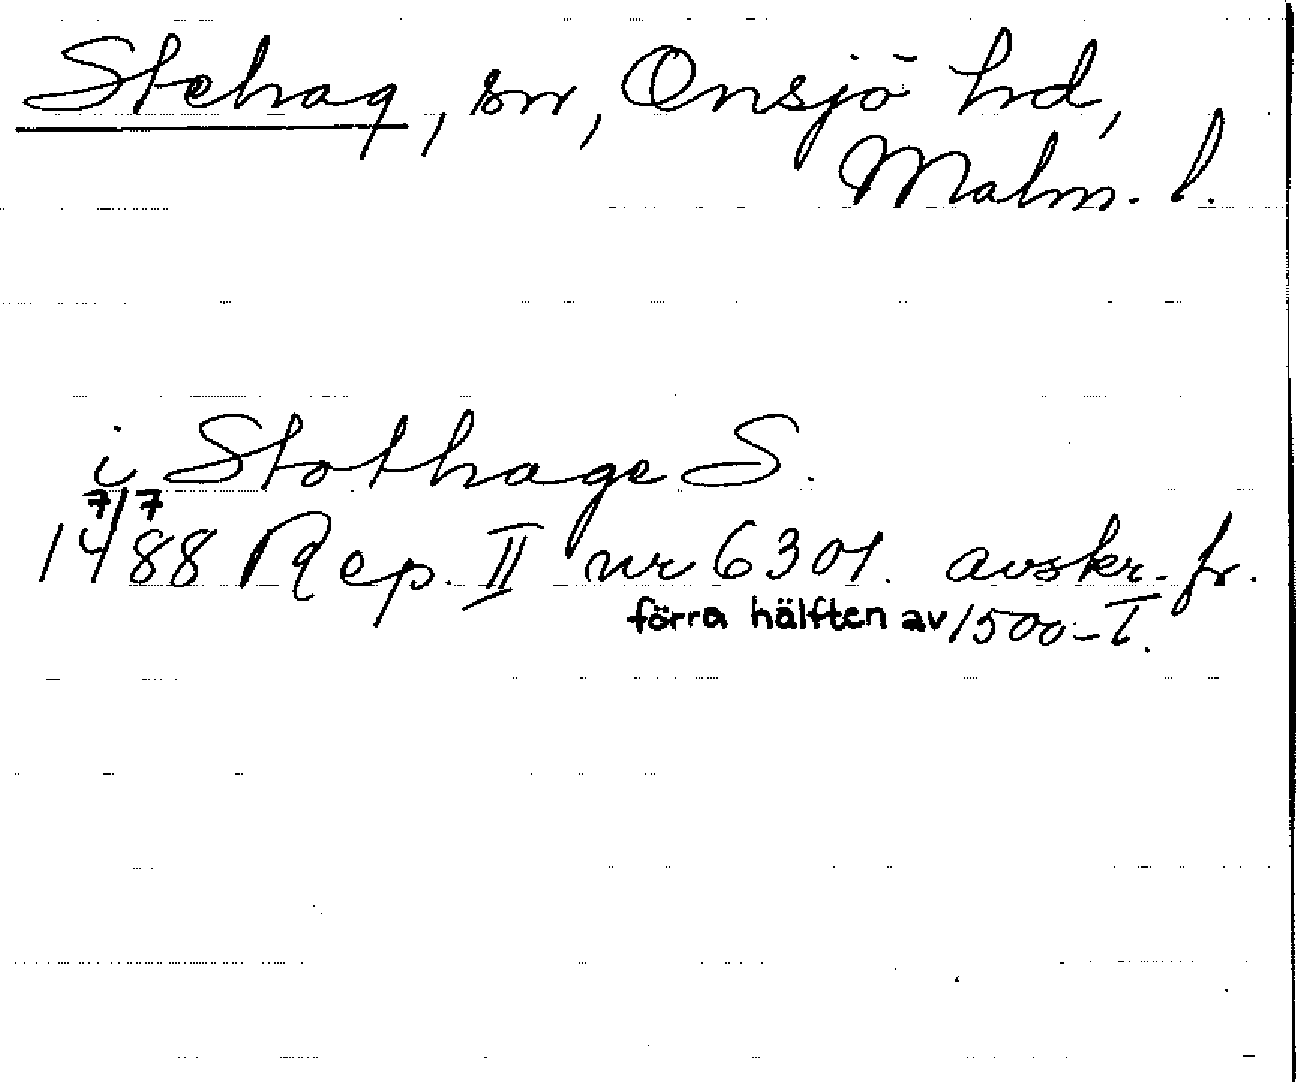 Stehag, sn, Onsjö hd,
Malm. l.
i Stothage S.
7/7
1488 Rep. II nr 6301. avskr. fr.
förra hälften av 1500-T.